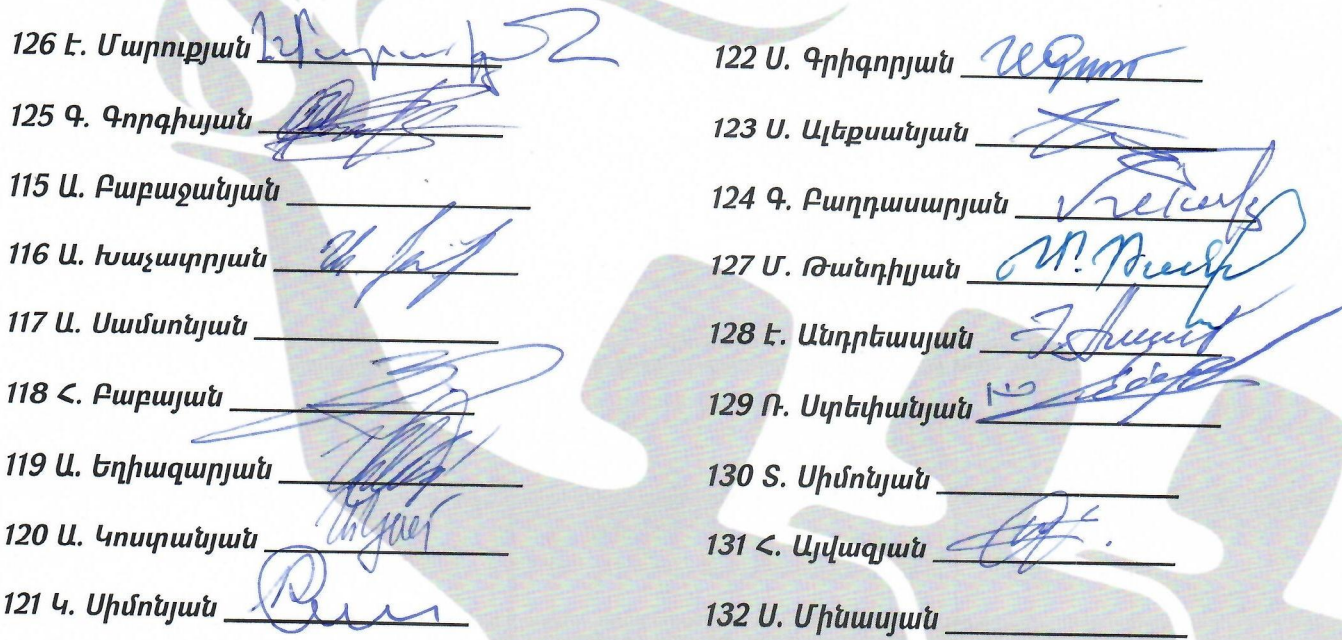 126 Է. Մարուքյան
125 Գ. Գորգիսյան
115 Ա. Բաբաջանյան
116 Ա. Խաչատրյան
117 Ա. Սամսոնյան
118 Հ. Բաբայան
119 Ա. Եղիազարյան
120 Ա. Կոստանյան
121 Կ. Սիմոնյան
122 Ս. Գրիգորյան
123 Ս. Ալեքսանյան
124 Գ. Բաղդասարյան
127 Մ. Թանդիլյան
128 Է. Անդրեասյան
129 Ռ. Ստեփանյան
130 Տ. Սիմոնյան
131 Հ. Այվազյան
132 Ս. Մինասյան